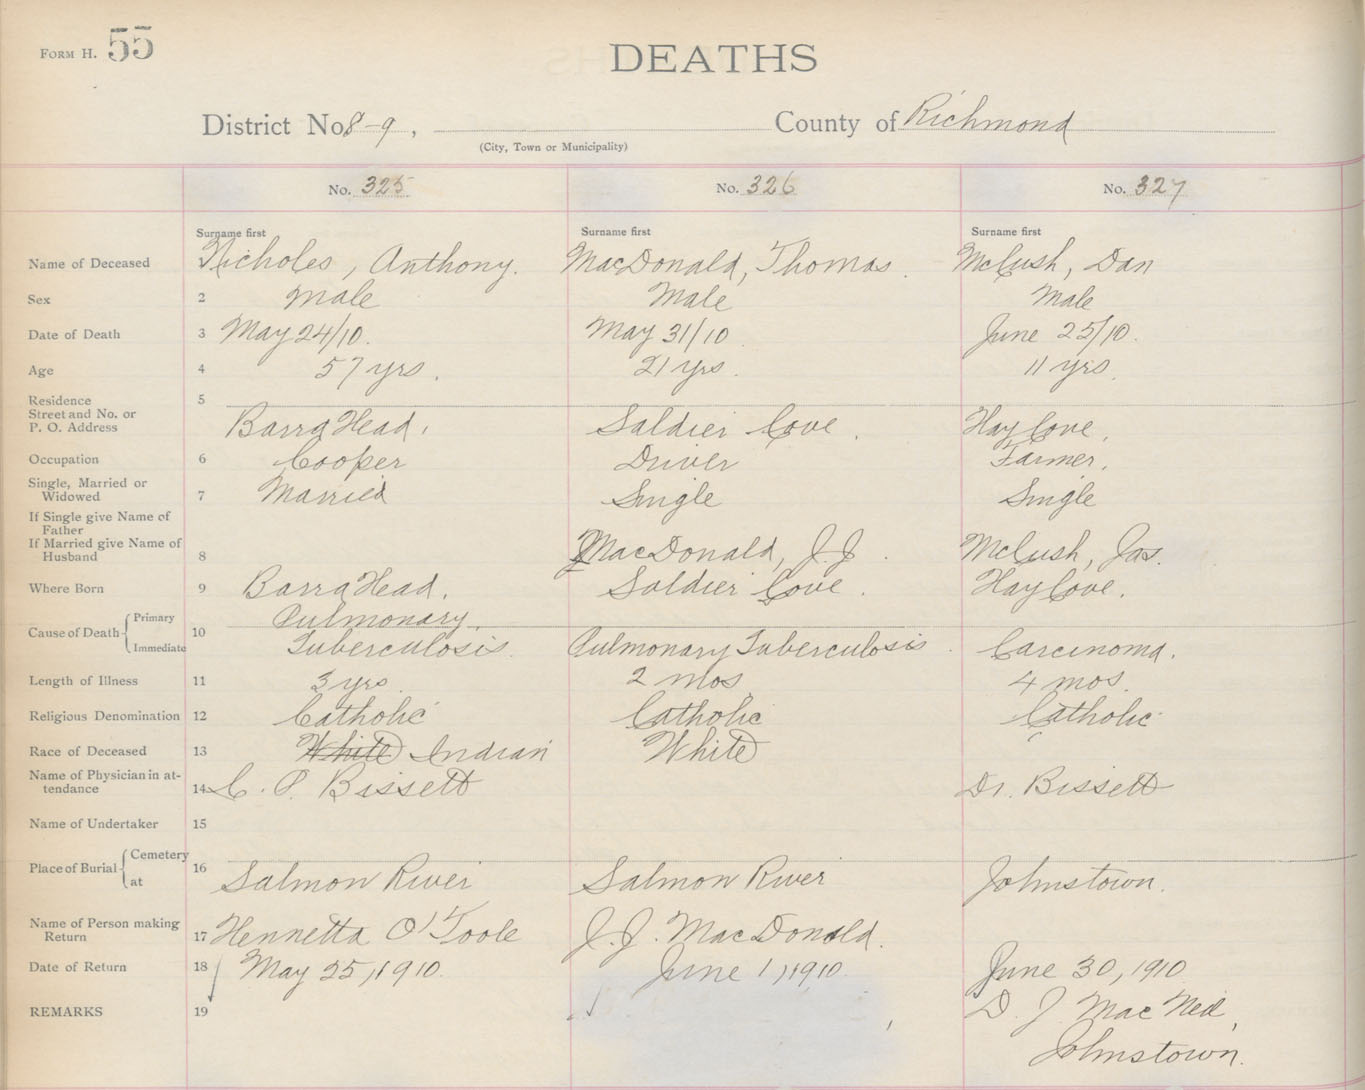 FORM H. 55
DEATHS
District No. 8-9, County of Richmond
(City, Town or Municipality)
No. 325 No. 326 No. 327
Surname first Surname first Surname first
Name of Deceased 1 Nicholes, Anthony. MacDonald, Thomas. McCush, Dan
Sex 2 Male Male Male
Date of Death 3 May 24/10. May 31/10 June 25/10.
Age 4 57 yrs. 21 yrs. 11 yrs.
Residence 5
Street and No. or
P. O. Address Barra Head, Soldier Cove. Hay Cove,
Occupation 6 Cooper Driver Farmer,
Single, Married or
Widowed 7 Married Single Single
If Single give Name of
Father
If Married give Name of
Husband 8 MacDonald, J.J. McCush, Jas.
Where Born 9 Barra Head. Soldier Cove. Hay Cove.
Cause of Death { Primary Pulmonary
Immediate 10 Tuberculosis. Pulmonary Tuberculosis. Carcinoma.
Length of Illness 11 3 yrs. 2 mos. 4 mos.
Religious Denomination 12 Catholic Catholic Catholic
Race of Deceased 13 White Indian White
Name of Physician in at-
tendance 14 C. P. Bissett Dr. Bissett
Name of Undertaker 15
Place of Burial { Cemetery 16
at Salmon River Salmon River Johnstown.
Name of Person making
Return 17 Hennetta O'Toole J.J. MacDonald.
Date of Return 18 May 25, 1910. June 1, 1910. June 30, 1910
REMARKS 19 D. J. MacNeil,
Johnstown.